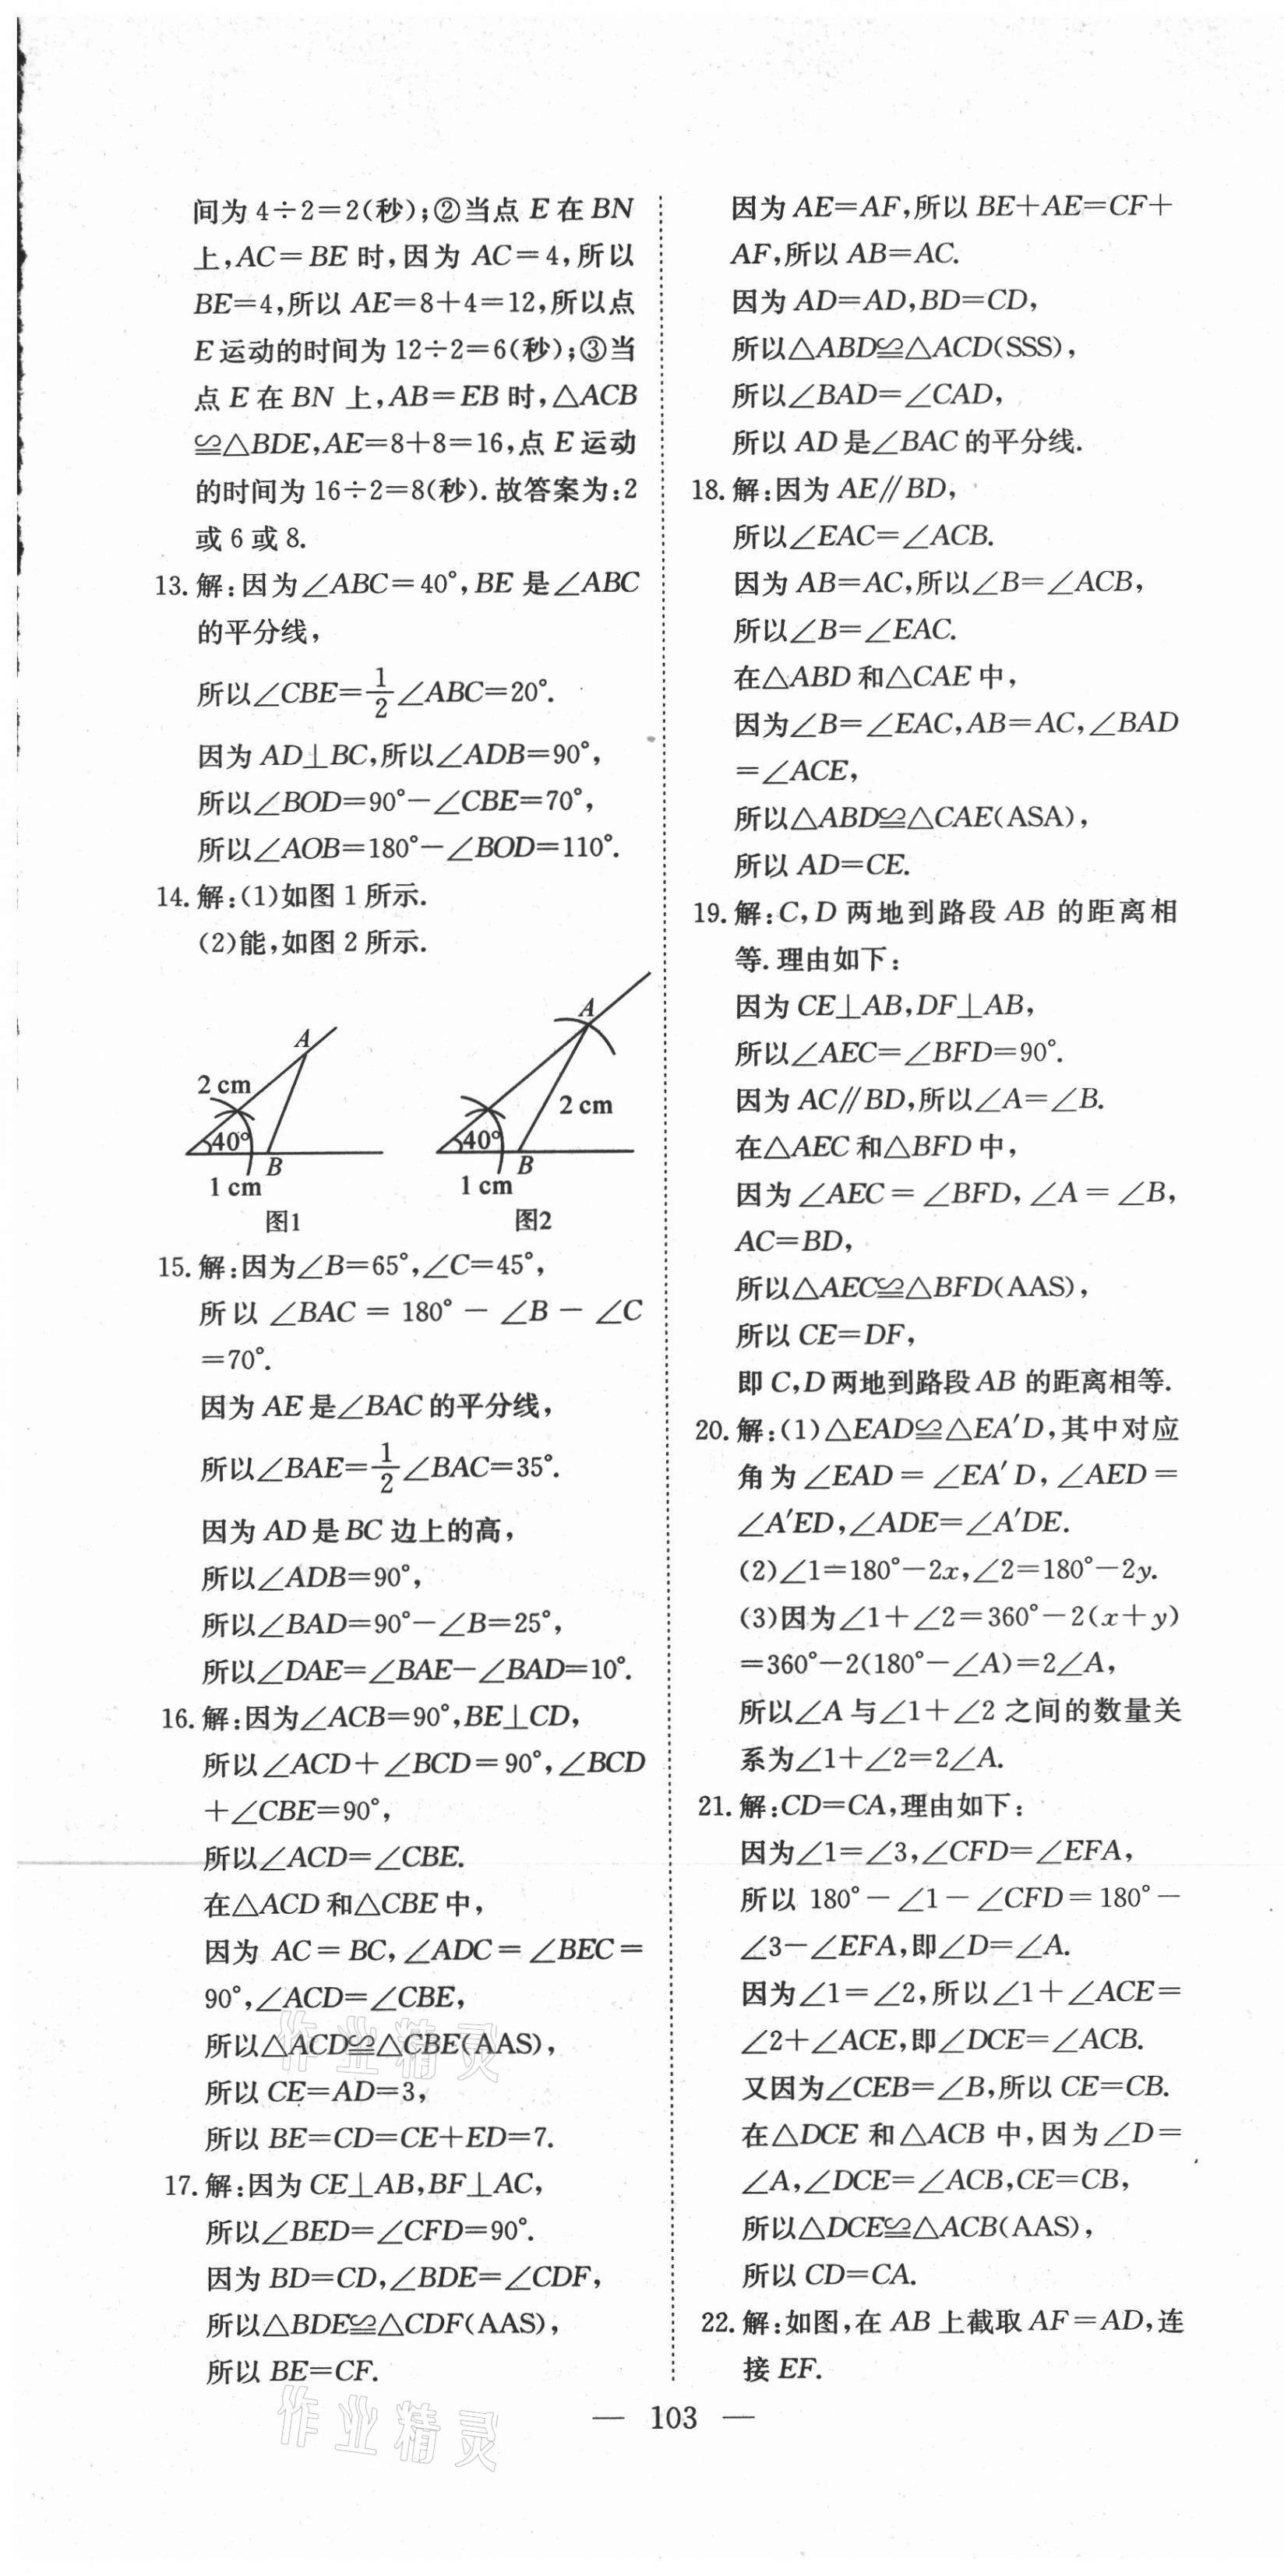 间为 4÷2=2(秒);②当点 E 在 BN
上,AC=BE 时,因为 AC=4,所以
BE=4,所以 AE=8+4=12,所以点
E 运动的时间为 12÷2=6(秒);③当
点 E 在 BN 上,AB=EB 时,△ACB
≌△BDE,AE=8+8=16,点 E 运动
的时间为 16÷2=8(秒).故答案为:2
或 6 或 8.
13. 解:因为∠ABC=40°,BE 是∠ABC
的平分线,
所以∠CBE=1/2∠ABC=20°.
因为 AD⊥BC,所以∠ADB=90°,
所以∠BOD=90°-∠CBE=70°,
所以∠AOB=180°-∠BOD=110°.
14. 解:(1)如图 1 所示.
(2)能,如图 2 所示.
A
2 cm
40°
B
1 cm
图1
A
2 cm
40°
B
1 cm
图2
15. 解:因为∠B=65°,∠C=45°,
所以 ∠BAC = 180° - ∠B - ∠C
=70°.
因为 AE 是∠BAC 的平分线,
所以∠BAE=1/2∠BAC=35°.
因为 AD 是 BC 边上的高,
所以∠ADB=90°,
所以∠BAD=90°-∠B=25°,
所以∠DAE=∠BAE-∠BAD=10°.
16. 解:因为∠ACB=90°,BE⊥CD,
所以∠ACD+∠BCD=90°,∠BCD
+∠CBE=90°,
所以∠ACD=∠CBE.
在△ACD 和△CBE 中,
因为 AC=BC,∠ADC=∠BEC=
90°,∠ACD=∠CBE,
所以△ACD≌△CBE(AAS),
所以 CE=AD=3,
所以 BE=CD=CE+ED=7.
17. 解:因为 CE⊥AB,BF⊥AC,
所以∠BED=∠CFD=90°.
因为 BD=CD,∠BDE=∠CDF,
所以△BDE≌△CDF(AAS),
所以 BE=CF.
因为 AE=AF,所以 BE+AE=CF+
AF,所以 AB=AC.
因为 AD=AD,BD=CD,
所以△ABD≌△ACD(SSS),
所以∠BAD=∠CAD,
所以 AD 是∠BAC 的平分线.
18. 解:因为 AE∥BD,
所以∠EAC=∠ACB.
因为 AB=AC,所以∠B=∠ACB,
所以∠B=∠EAC.
在△ABD 和△CAE 中,
因为∠B=∠EAC,AB=AC,∠BAD
=∠ACE,
所以△ABD≌△CAE(ASA),
所以 AD=CE.
19. 解:C,D 两地到路段 AB 的距离相
等.理由如下:
因为 CE⊥AB,DF⊥AB,
所以∠AEC=∠BFD=90°.
因为 AC∥BD,所以∠A=∠B.
在△AEC 和△BFD 中,
因为∠AEC=∠BFD,∠A=∠B,
AC=BD,
所以△AEC≌△BFD(AAS),
所以 CE=DF,
即 C,D 两地到路段 AB 的距离相等.
20. 解:(1)△EAD≌△EA′D,其中对应
角为∠EAD=∠EA′D,∠AED=
∠A′ED,∠ADE=∠A′DE.
(2)∠1=180°-2x,∠2=180°-2y.
(3)因为∠1+∠2=360°-2(x+y)
=360°-2(180°-∠A)=2∠A,
所以∠A 与∠1+∠2 之间的数量关
系为∠1+∠2=2∠A.
21. 解:CD=CA,理由如下:
因为∠1=∠3,∠CFD=∠EFA,
所以 180°-∠1-∠CFD=180°-
∠3-∠EFA,即∠D=∠A.
因为∠1=∠2,所以∠1+∠ACE=
∠2+∠ACE,即∠DCE=∠ACB.
又因为∠CEB=∠B,所以 CE=CB.
在△DCE 和△ACB 中,因为∠D=
∠A,∠DCE=∠ACB,CE=CB,
所以△DCE≌△ACB(AAS),
所以 CD=CA.
22. 解:如图,在 AB 上截取 AF=AD,连
接 EF.
— 103 —
作业精灵
作业精灵